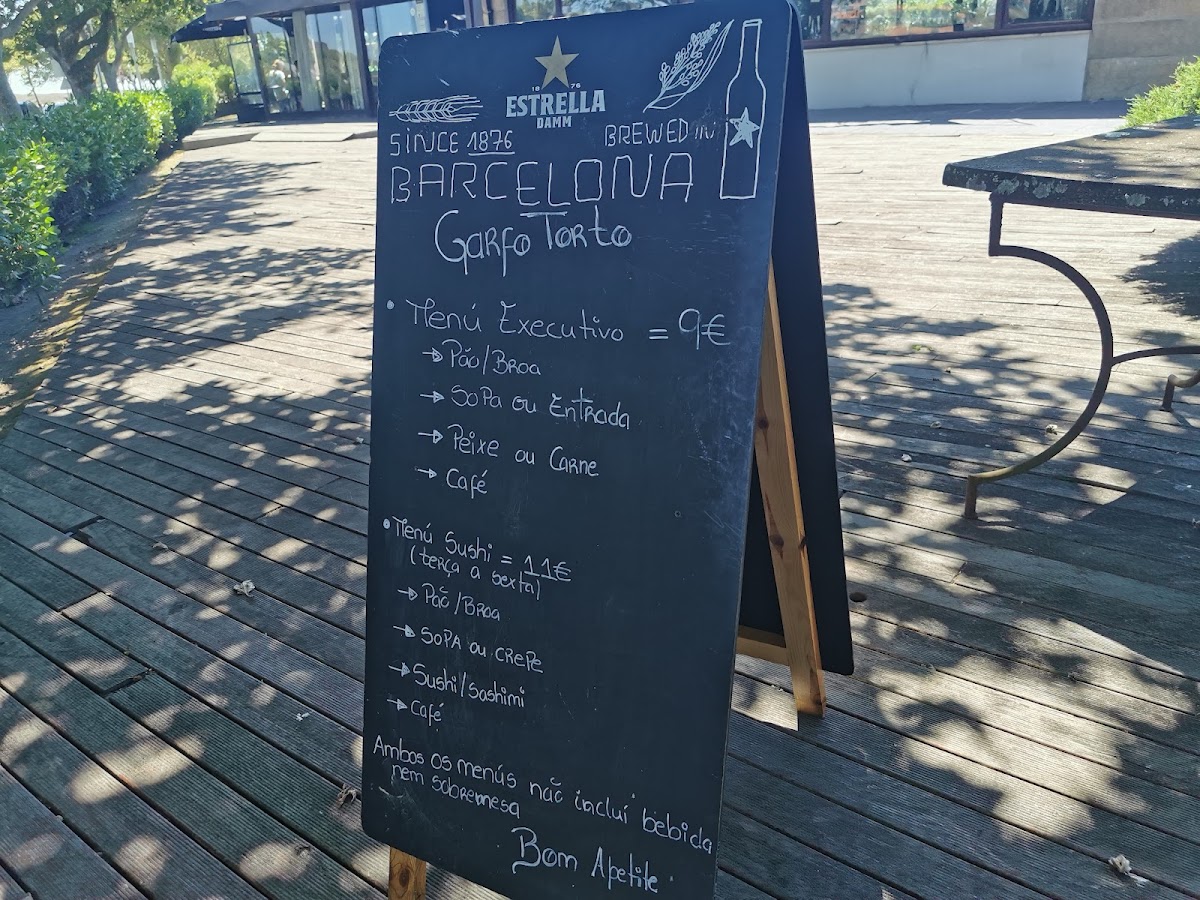 18 76
ESTRELLA
DAMM
SINCE 1876 BREWED IN
BARCELONA
Garfo Torto
• Menú Executivo = 9€
→ Pão/Broa
→ Sopa ou Entrada
→ Peixe ou Carne
→ Café
• Menú Sushi = 11€
(terça a sexta)
→ Pão/Broa
→ Sopa ou crepe
→ Sushi/Sashimi
→ Café
Ambos os menús não incluí bebida
nem sobremesa
Bom Apetite